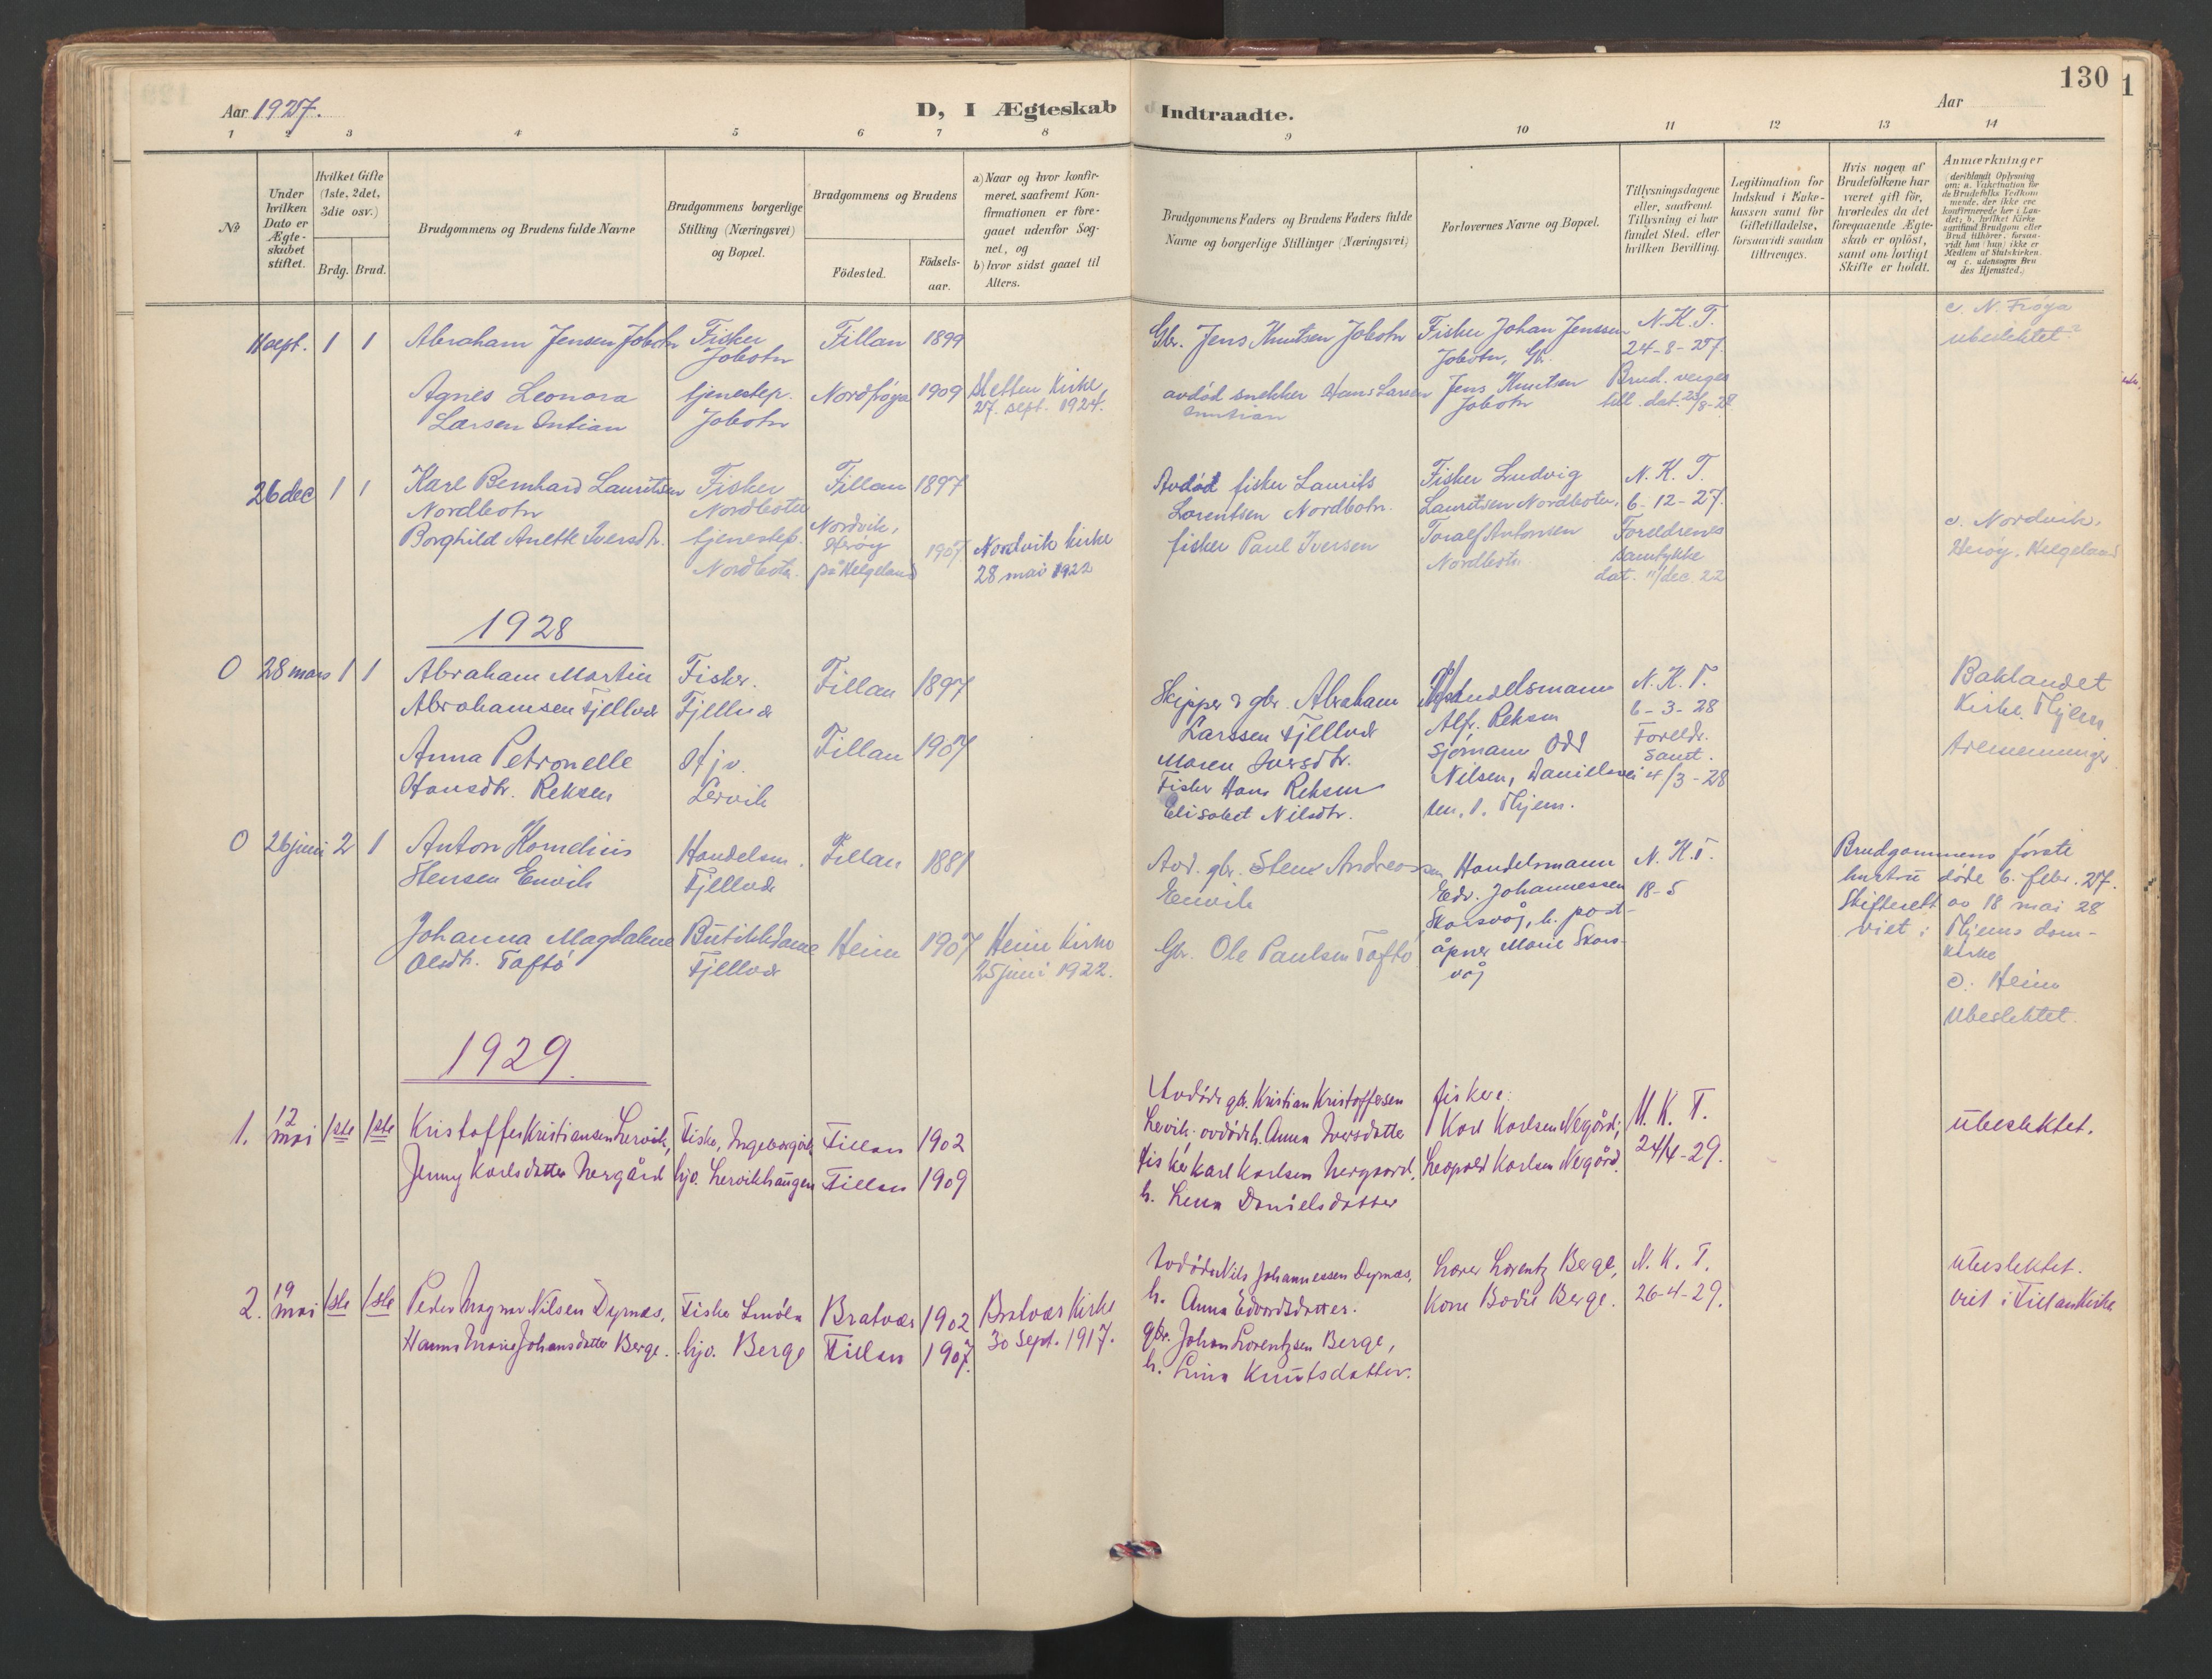 130
Aar 1927.
D, I Ægteskab Indtraadte.
Aar
1 2 3 4 5 6 7 8 9 10 11 12 13 14
No
Under hvilken Dato er Ægteskabet stiftet.
Hvilket Gifte (1ste, 2det, 3die osv.)
Brdg. Brud.
Brudgommens og Brudens fulde Navne
Brudgommens borgerlige Stilling (Næringsvei) og Bopæl.
Brudgommens og Brudens
Fødested.
Fødselsaar.
a) Naar og hvor konfirmeret, saafremt Konfirmationen er foregaaet udenfor Sognet, og
b) hvor sidst gaaet til Alters.
Brudgommens Faders og Brudens Faders fulde Navne og borgerlige Stillinger (Næringsvei)
Forlovernes Navne og Bopæl.
Tillysningsdagene eller, saafremt Tillysning ei har fundet Sted, efter hvilken Bevilling.
Legitimation for Indskud i Enkekassen samt for Giftetilladelse, forsaavidt saadan tiltrænges.
Hvis nogen af Brudefolkene har været gift før, hvorledes da det foregaaende Ægteskab er opløst, samt om lovligt Skifte er holdt.
Anmærkninger (deriblandt Oplysning om: a. Vakcination for de Brudefolks Vedkommende, der ikke ere konfirmerede her i Landet; b. hvilket Kirkesamfund Brudgom eller Brud tilhører, forsaavidt han (hun) ikke er Medlem af Statskirken, og c. udensogns Brudes Hjemsted.)
11 sept. 1 1 Abraham Jensen Jobotn
Fisker
Jobotn
Fillan 1899
Gbr. Jens Knutsen Jobotn
Fisker Johan Jenssen
Jobotn, Gbr.
N.K.T.
24-8-27.
c. N. Frøya
ubeslektet
Agnes Leonora
Larsen Intian
tjenestep.
Jobotn
Nordfrøya 1909
Sletten Kirke
27. sept. 1924.
avdød snekker Hans Larsen
Jens Knutsen
Jobotn
Brud. verges
till. dat.
26 dec 1 1 Karl Bernhard Lauritsen
Nordbotn
Fisker
Nordbotn
Fillan 1897
Avdød fisker Laurits
Lorentsen Nordbotn.
Fisker Ludvig
Lauritsen Nordbotn.
N. K. T.
6-12-27.
Borghild Anette Iversdtr.
tjenestep.
Nordbotn.
Nordvik,
Herøy
på Helgeland
1907.
Nordvik kirke
28 mai 1922
fisker Paul Iversen
Toralf Antonsen
Nordbotn
Foreldrenes
samtykke
dat. 11/dec. 22
c. Nordvik,
Herøy, Helgeland
1928
0 28 mars 1 1 Abraham Martin
Abrahamsen Fjellvær
Fisker.
Fjellvær
Fillan 1897
Skipper & gbr. Abraham
Larssen Fjellvær
Maren Iversdtr.
Handelsmann
Alfr. Reksen
N. K. T.
6-3-28
Baklandet
Kirke. Thjem
Anna Petronelle
Hansdtr. Reksen
Hjv.
Lervik
Fillan 1907
Fisker Hans Reksen
Elisabet Nilsdtr.
Sjømann Odd
Nilsen, Danielsvei
Thjem.
Foreldr.
samt.
4/3-28
0 26 juni 2 1 Anton Kornelius
Stensen Envik
Handelsm.
Fjellvær
Fillan 1881
Avd. gbr. Sten Andreassen
Envik
Handelsmann
Edv. Johannessen
Skarsvåg, h. post-
åpner Marie Skars-
våg
N. K. T.
18-5
Brudgommens første
hustru døde 6. febr. 27.
Skifterett av 18 mai 28
viet i Thjems dom-
kirke
c. Heim
Ubeslektet.
Johanna Magdalene
Olsdtr. Taftø
Butikkdame
Fjellvær
Heim 1907
Heim Kirke
25 juni 1922.
Gbr. Ole Paulsen Taftø
1929.
1. 12 mai 1ste 1ste Kristoffer Kristiansen Lervik,
Fisker, Ingebergvik
Fillan 1902
Avdøde gbr. Kristian Kristoffersen
Lervik. avdød h. Anna Iversdatter
fiskere:
Karl Karlsen Nergård;
N. K. T.
24/4-29.
ubeslektet.
Jenny Karlsdatter Nergård
hjv. Lervikhaugen
Fillan 1909
fisker Karl Karlsen Nergaard.
h. Lena Danielsdatter
Leopold Karlsen Nergård.
2. 19 mai 1ste 1ste Peder Magnar Nilsen Dyrnes.
Fisker Smøla
Bratvær 1902
Bratvær Kirke
30 Sept. 1917.
Avdøde Nils Johannessen Dyrnes,
h. Anna Edvardsdatter.
Lærer Lorentz Berge,
Kone Bodil Berge.
N. K. T.
26-4-29.
ubeslektet.
viet i Fillan Kirke
Hanna Marie Johansdatter Berge.
hjv. Berge
Fillan 1907.
gbr. Johan Lorentzsen Berge,
h. Lina Knutsdatter.